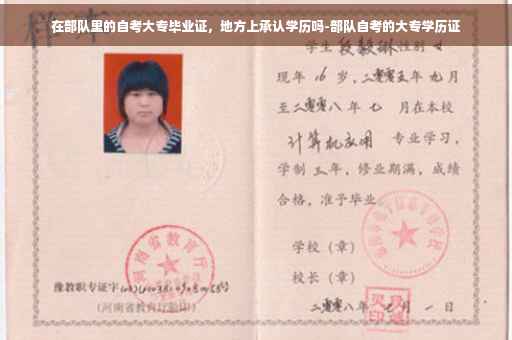 在部队里的自考大专毕业证，地方上承认学历吗-部队自考的大专学历证
样本
学生段毅琳性别女
现年16岁，二零零五年九月
至二零零八年七月在本校
计算机应用 专业学习，
学制三年，修业期满，成绩
合格，准予毕业
学校（章）
校长（章）
河南省教育厅
豫教职专证字
(河南省教育厅验印)
二零零八年七月一日